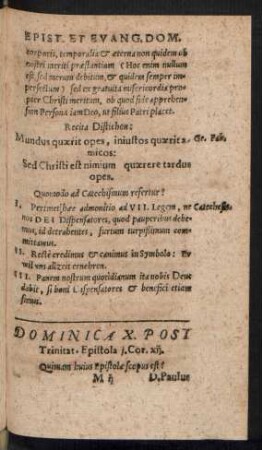 EPIST. ET EVANG. DOM.
corporis, temporalia & æterna non quidem ob
nostri meriti præstantiam (Hoc enim nullum
est, sed merum debitum, & quidem semper im-
perfectum) sed ex gratuita misericordia pro-
pter Christi meritum, ob quod fide apprehen-
sum Persona iam Deo, ut filius Patri placet.
Recita Distichon:
Mundus quærit opes, iniustos quærit a-
micos:
Sed Christi est nimium quærere tardus
opes.
Quomodo ad Catechismum refertur?
Catechesis.
I. Pertinet hæc admonitio ad VII. Legem, ne
nos DEI Dispensatores, quod pauperibus debe-
mus, id detrahentes, furtum turpissimum com-
mittamus.
II. Recte credimus & canimus in Symbolo: Er
wil uns allzeit ernehren.
III. Panem nostrum quotidianum ita nobis Deus
dabit, si boni Dispensatores & benefici etiam
simus.
DOMINICA X. POST
Trinitat. Epistola j. Cor. xij.
Quinam huius Epistolæ scopus est?
M ij D. Paulus